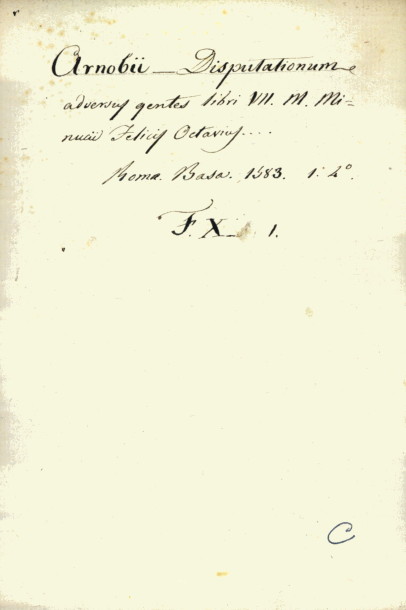 Arnobii — Disputationum
adversus gentes libri VII. M. Mi-
nucii Felicis Octavius....
Romæ. Basa. 1583. 1. 4°.
F. X — 1.
C